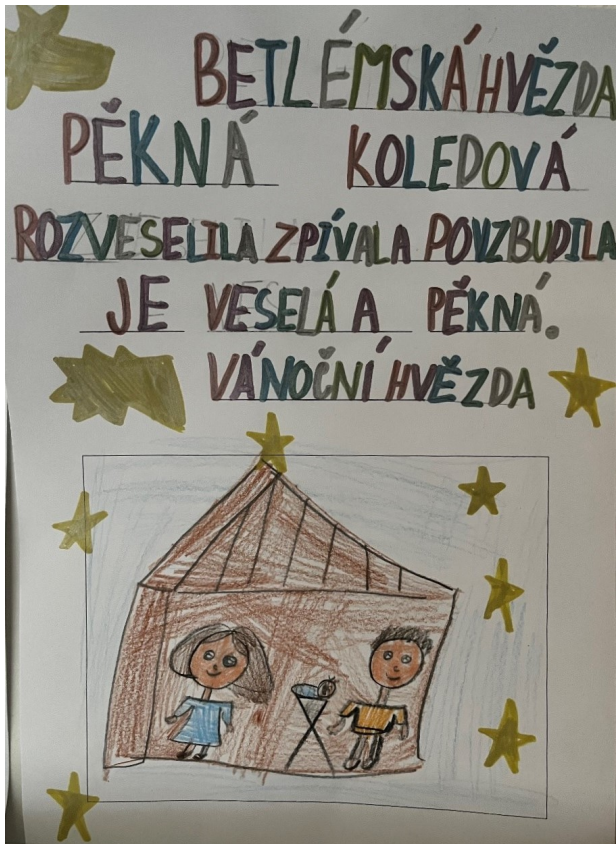 BETLÉMSKÁ HVĚZDA
PĚKNÁ KOLEDOVÁ
ROZVESELILA ZPÍVALA POVZBUDILA
JE VESELÁ A PĚKNÁ.
VÁNOČNÍ HVĚZDA